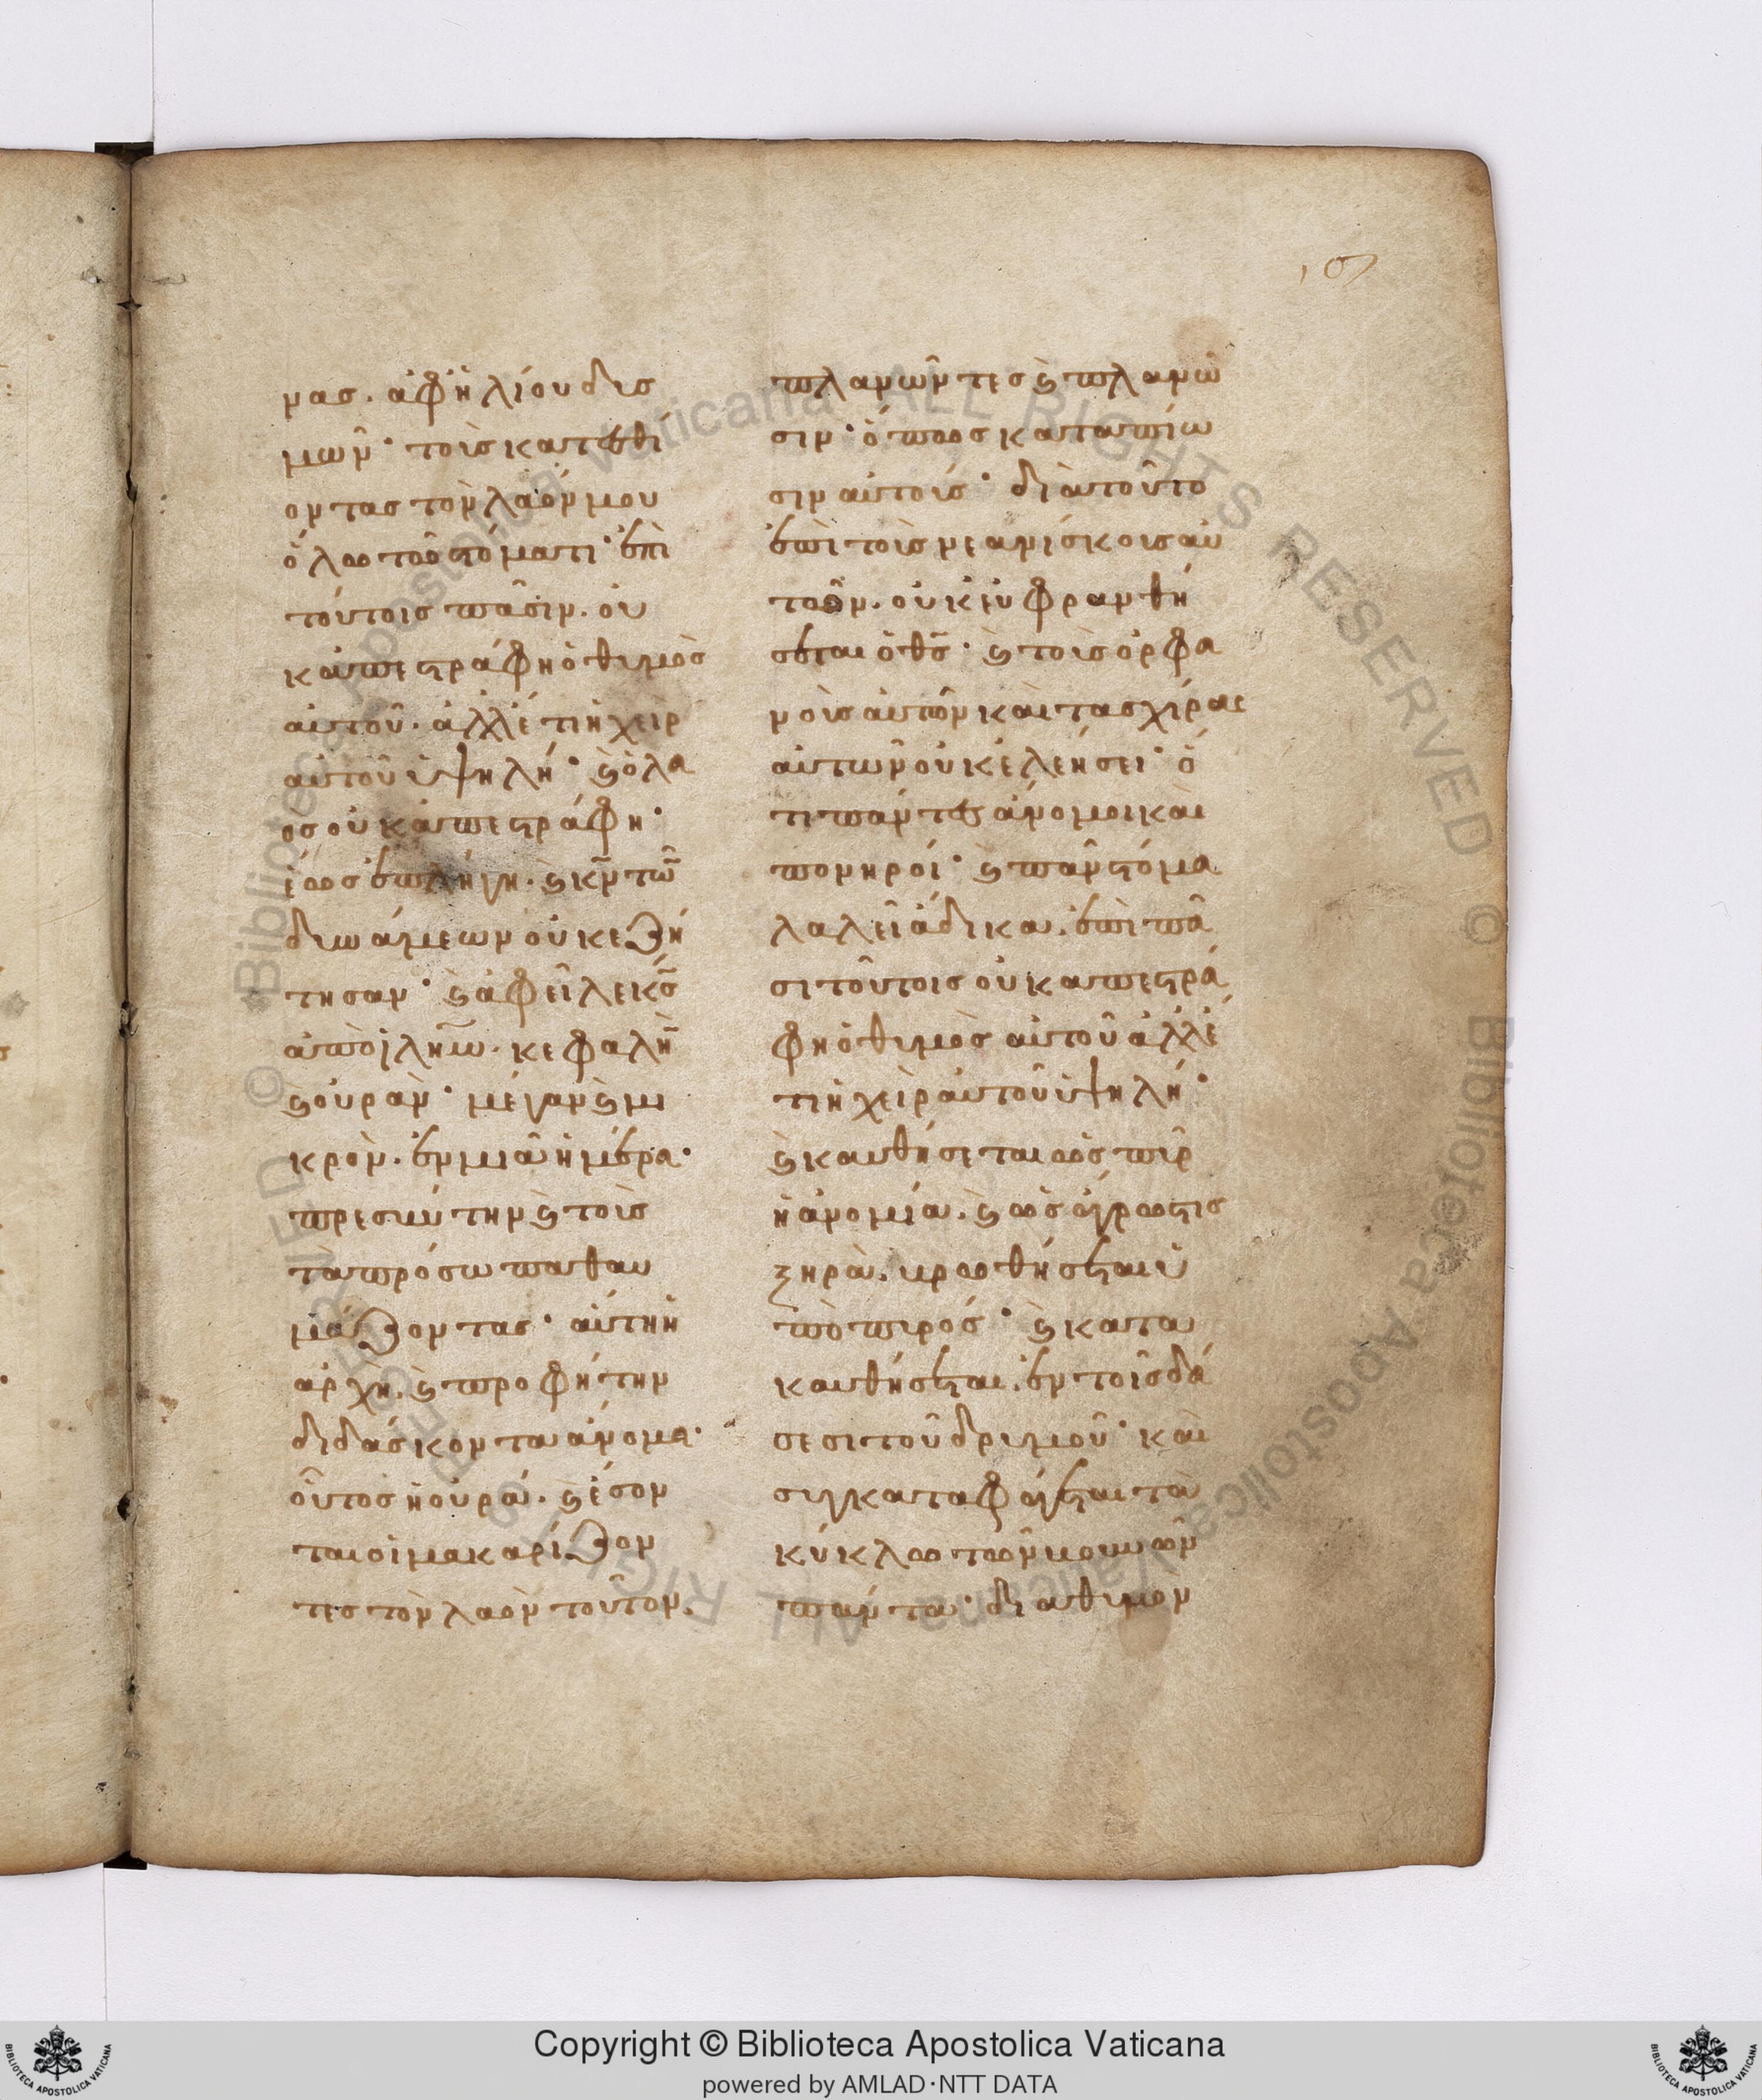 107
νας. ἀφἡλίου δυσ
μῶν· τοὺς κατεσθί
οντας τὸν λαόν μου
ὅλω τῶ στόματι· ἐπὶ
τούτοις πᾶσιν. οὐ
κ ἀπεστράφη ὁ θυμὸς
αὐτοῦ. ἀλλ' ἔτι ἡ χεὶρ
αὐτοῦ ὑψηλή· καὶ ὁ λα
ὸς οὐκ ἀπεστράφη·
ἕως ἐπλήγη. καὶ κν τῶ
δυνάμεων οὐκ ἐζή
τησαν· καὶ ἀφεῖλε κς
ἀπὸ ιλημ. κεφαλὴ
καὶ οὐράν· μέγαν καὶ μι
κρὸν. ἐν μιᾶ ἡμέρα·
πρεσβύτην καὶ τοὺς
τὰ πρόσωπα θαυ
μάζοντας· αὕτη ἡ
ἀρχή. καὶ προφήτην
διδάσκοντα ἄνομα·
οὗτος ἡ οὐρά. καὶ ἔσον
ται οἱ μακαρίζον
τες τὸν λαὸν τοῦτον.
πλανῶντες καὶ πλανῶ
σιν· ὅπως καταπίω
σιν αὐτούς· διὰ τοῦτο
ἐπὶ τοὺς νεανίσκους αὐ
τῶν. οὐκ εὐφρανθή
σεται ὁ θς· καὶ τοὺς ὀρφα
νοὺς αὐτῶν καὶ τὰς χήρας
αὐτῶν οὐκ ἐλεήσει· ὅ
τι πάντες ἄνομοι καὶ
πονηροί· καὶ πᾶν στόμα
λαλεῖ ἄδικα. ἐπὶ πᾶ
σι τούτοις οὐκ ἀπεστρά
φη ὁ θυμὸς αὐτοῦ ἀλλ' ἔ
τι ἡ χεὶρ αὐτοῦ ὑψηλή·
καὶ καυθήσεται ὡς πῦρ
ἡ ἀνομία. καὶ ὡς ἄγρωστις
ξηρὰ. βρωθήσεται ὑ
πὸ πυρός· καὶ κατα
καυθήσεται. ἐν τοῖς δά
σεσι τοῦ δρυμοῦ· καὶ
συγκαταφάγεται τὰ
κύκλω τῶν βουνῶν
πάντα· διὰ θυμὸν
Copyright © Biblioteca Apostolica Vaticana
powered by AMLAD·NTT DATA